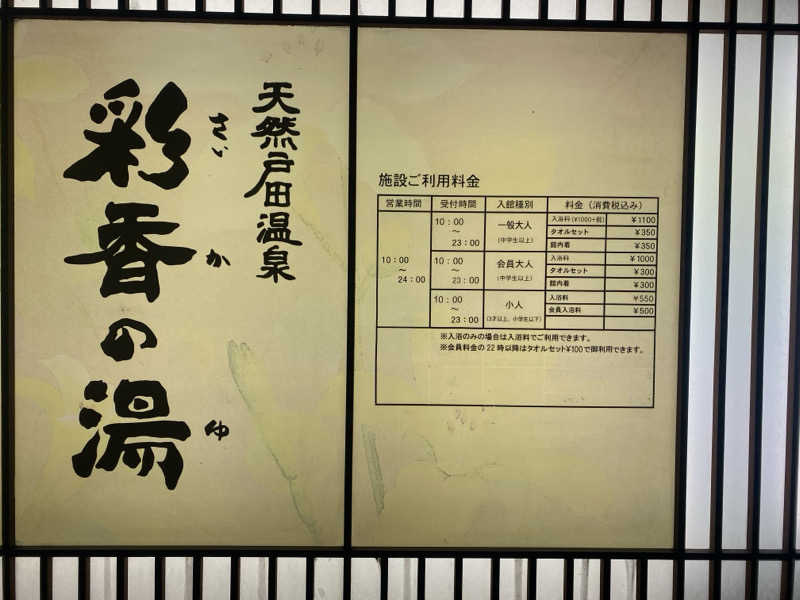 天然戸田温泉
彩香の湯
さい
か
ゆ
施設ご利用料金
営業時間 受付時間 入館種別 料金（消費税込み）
10：00
〜
24：00
10：00
〜
23：00
一般大人
(中学生以上)
入浴料(¥1000+税) ¥1100
タオルセット ¥350
館内着 ¥350
10：00
〜
23：00
会員大人
(中学生以上)
入浴料 ¥1000
タオルセット ¥300
館内着 ¥300
10：00
〜
23：00
小人
(3才以上、小学生以下)
入浴料 ¥550
会員入浴料 ¥500
※入浴のみの場合は入浴料でご利用できます。
※会員料金の22時以降はタオルセット¥100で御利用できます。